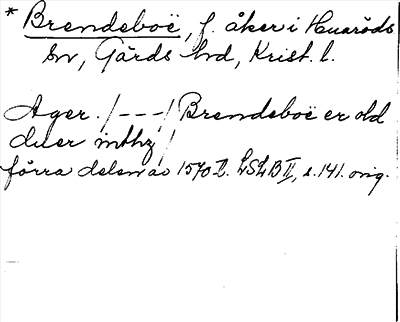 * Brendeboë, f. åker i Huaröds
sn, Gärds hd, Krist. l.
Ager. /---/ Brendeboë er old
duer inthz /
förra delen av 1570 t. LSLB II, s. 141. orig.